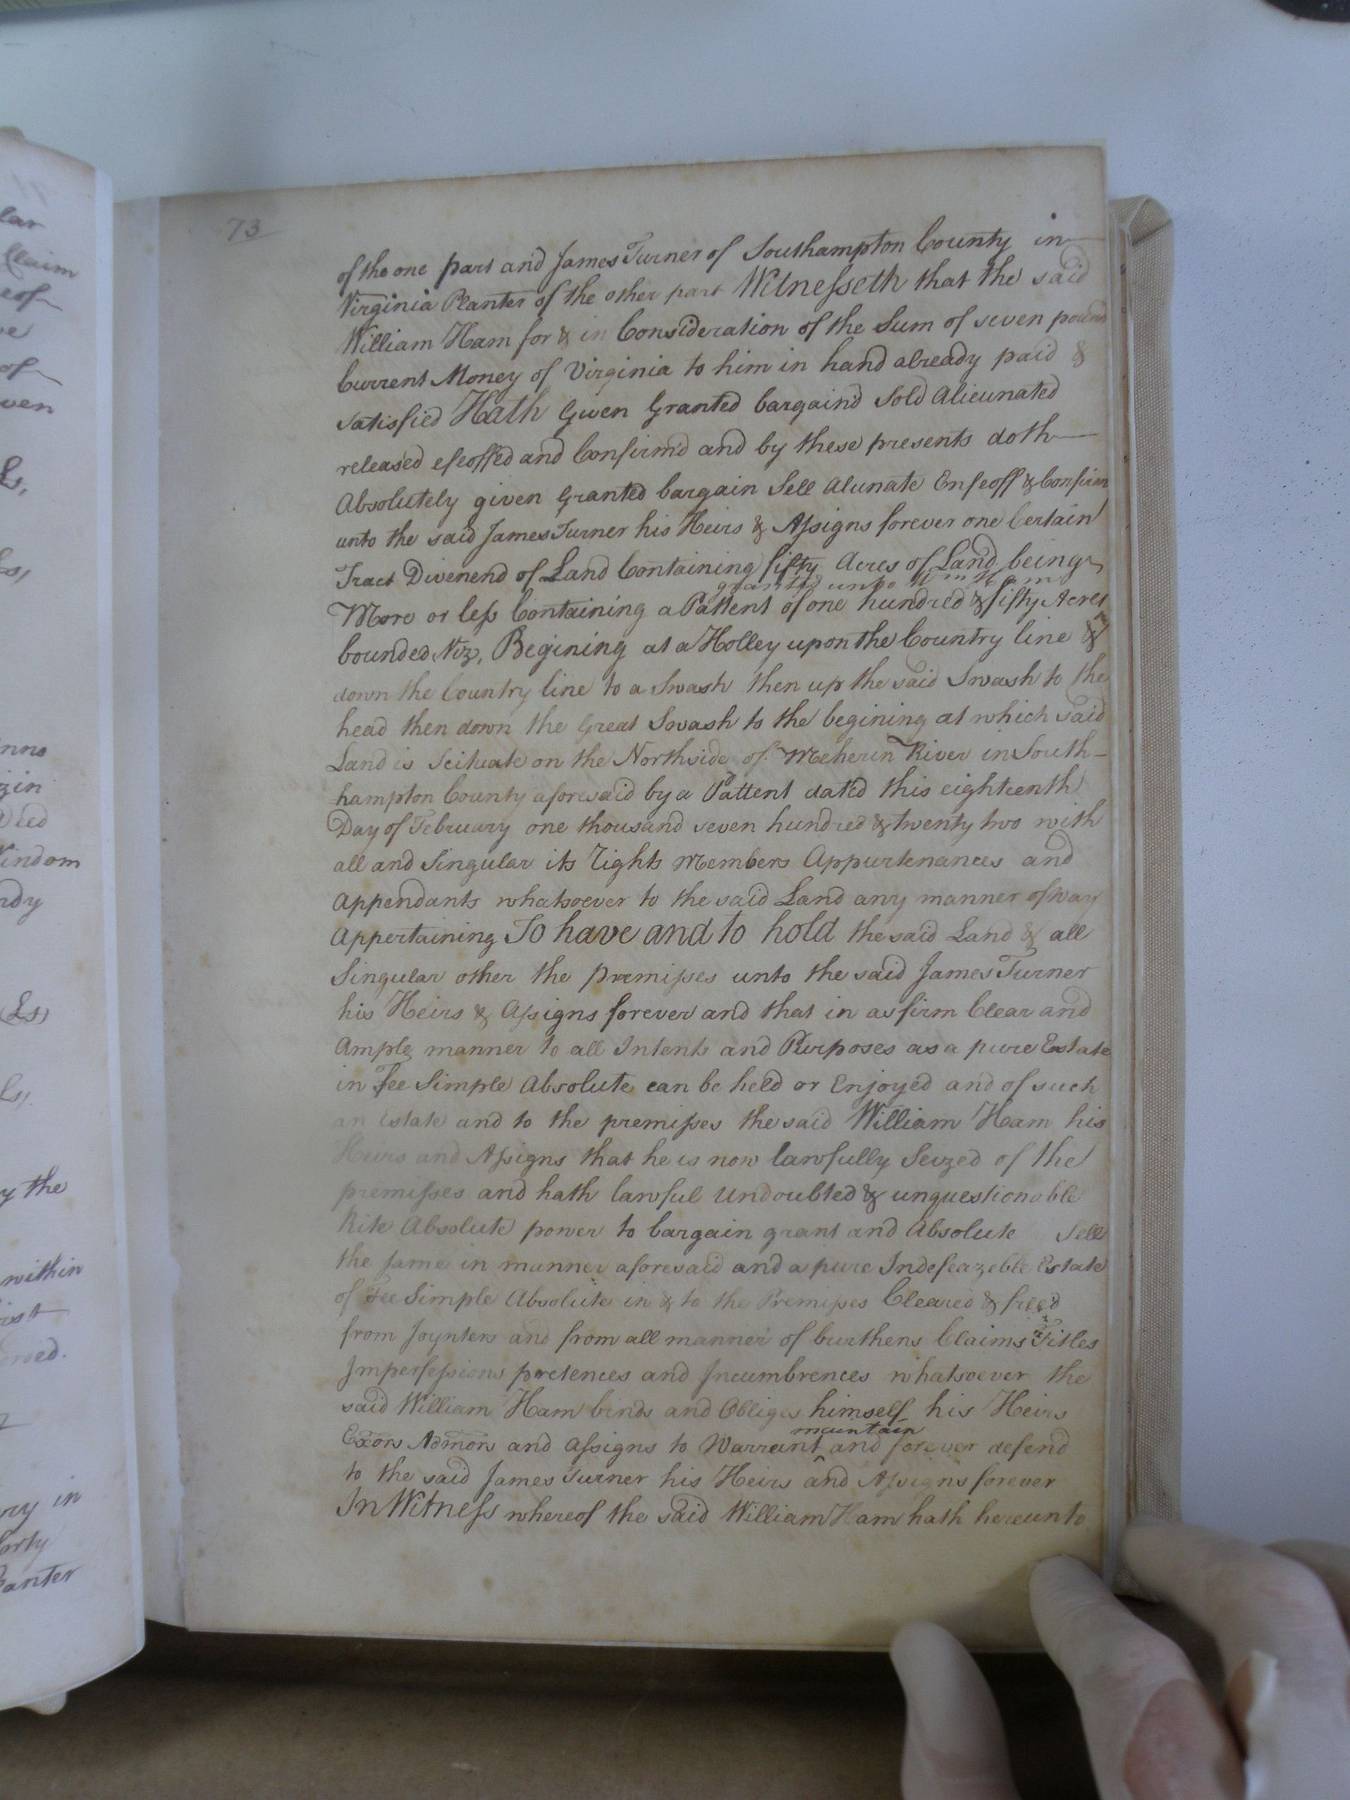 73
of the one part and James Turner of Southampton County in
Virginia Planter of the other part Witnesseth that the said
William Ham for & in Consideration of the Sum of seven pound
Current Money of Virginia to him in hand already paid &
satisfied Hath Given Granted bargaind Sold Alieunated
released efeoffed and Confirmd and by these presents doth
Absolutely given Granted bargain Sell Alunate Enfeoff & Confirm
unto the said James Turner his Heirs & Assigns forever one Certain
Tract Divenend of Land Containing fifty Acres of Land being
granted unto Wm Ham
More or less Containing a Pattent of one hundred & fifty Acres
bounded Viz, Begining at a Holley upon the Country line &
down the Country line to a Swash then up the said Swash to the
head then down the Great Swash to the begining at which said
Land is Scituate on the Northside of Meherin River in South-
hampton County aforesaid by a Pattent dated this eighteenth
Day of February one thousand seven hundred & twenty two with
all and Singular its Rights Members Appurtenances and
Appendants whatsoever to the said Land any manner of way
Appertaining To have and to hold the said Land & all
Singular other the premisses unto the said James Turner
his Heirs & Assigns forever and that in as firm Clear and
Ample manner to all Intents and Purposes as a pure Estate
in Fee Simple Absolute can be held or Enjoyed and of such
an Estate and to the premisses the said William Ham his
Heirs and Assigns that he is now lawfully Seized of the
premisses and hath lawful Undoubted & unquestionable
Rite Absolute power to bargain grant and Absolute Sell
the same in manner aforesaid and a pure Indefeazeble Estate
of Fee Simple Absolute in & to the Premises Cleared & freed
from Joynters and from all manner of burthens Claims Titles
Imperfessions pretences and Incumbrences whatsoever the
said William Ham binds and Obliges himself his Heirs
maintain
Exors Admors and Assigns to Warrant and forever defend
to the said James Turner his Heirs and Assigns forever
In Witness whereof the said William Ham hath hereunto
lar
Claim
ve
of
ven
nno
Windom
y the
within
ry in
forty
Planter